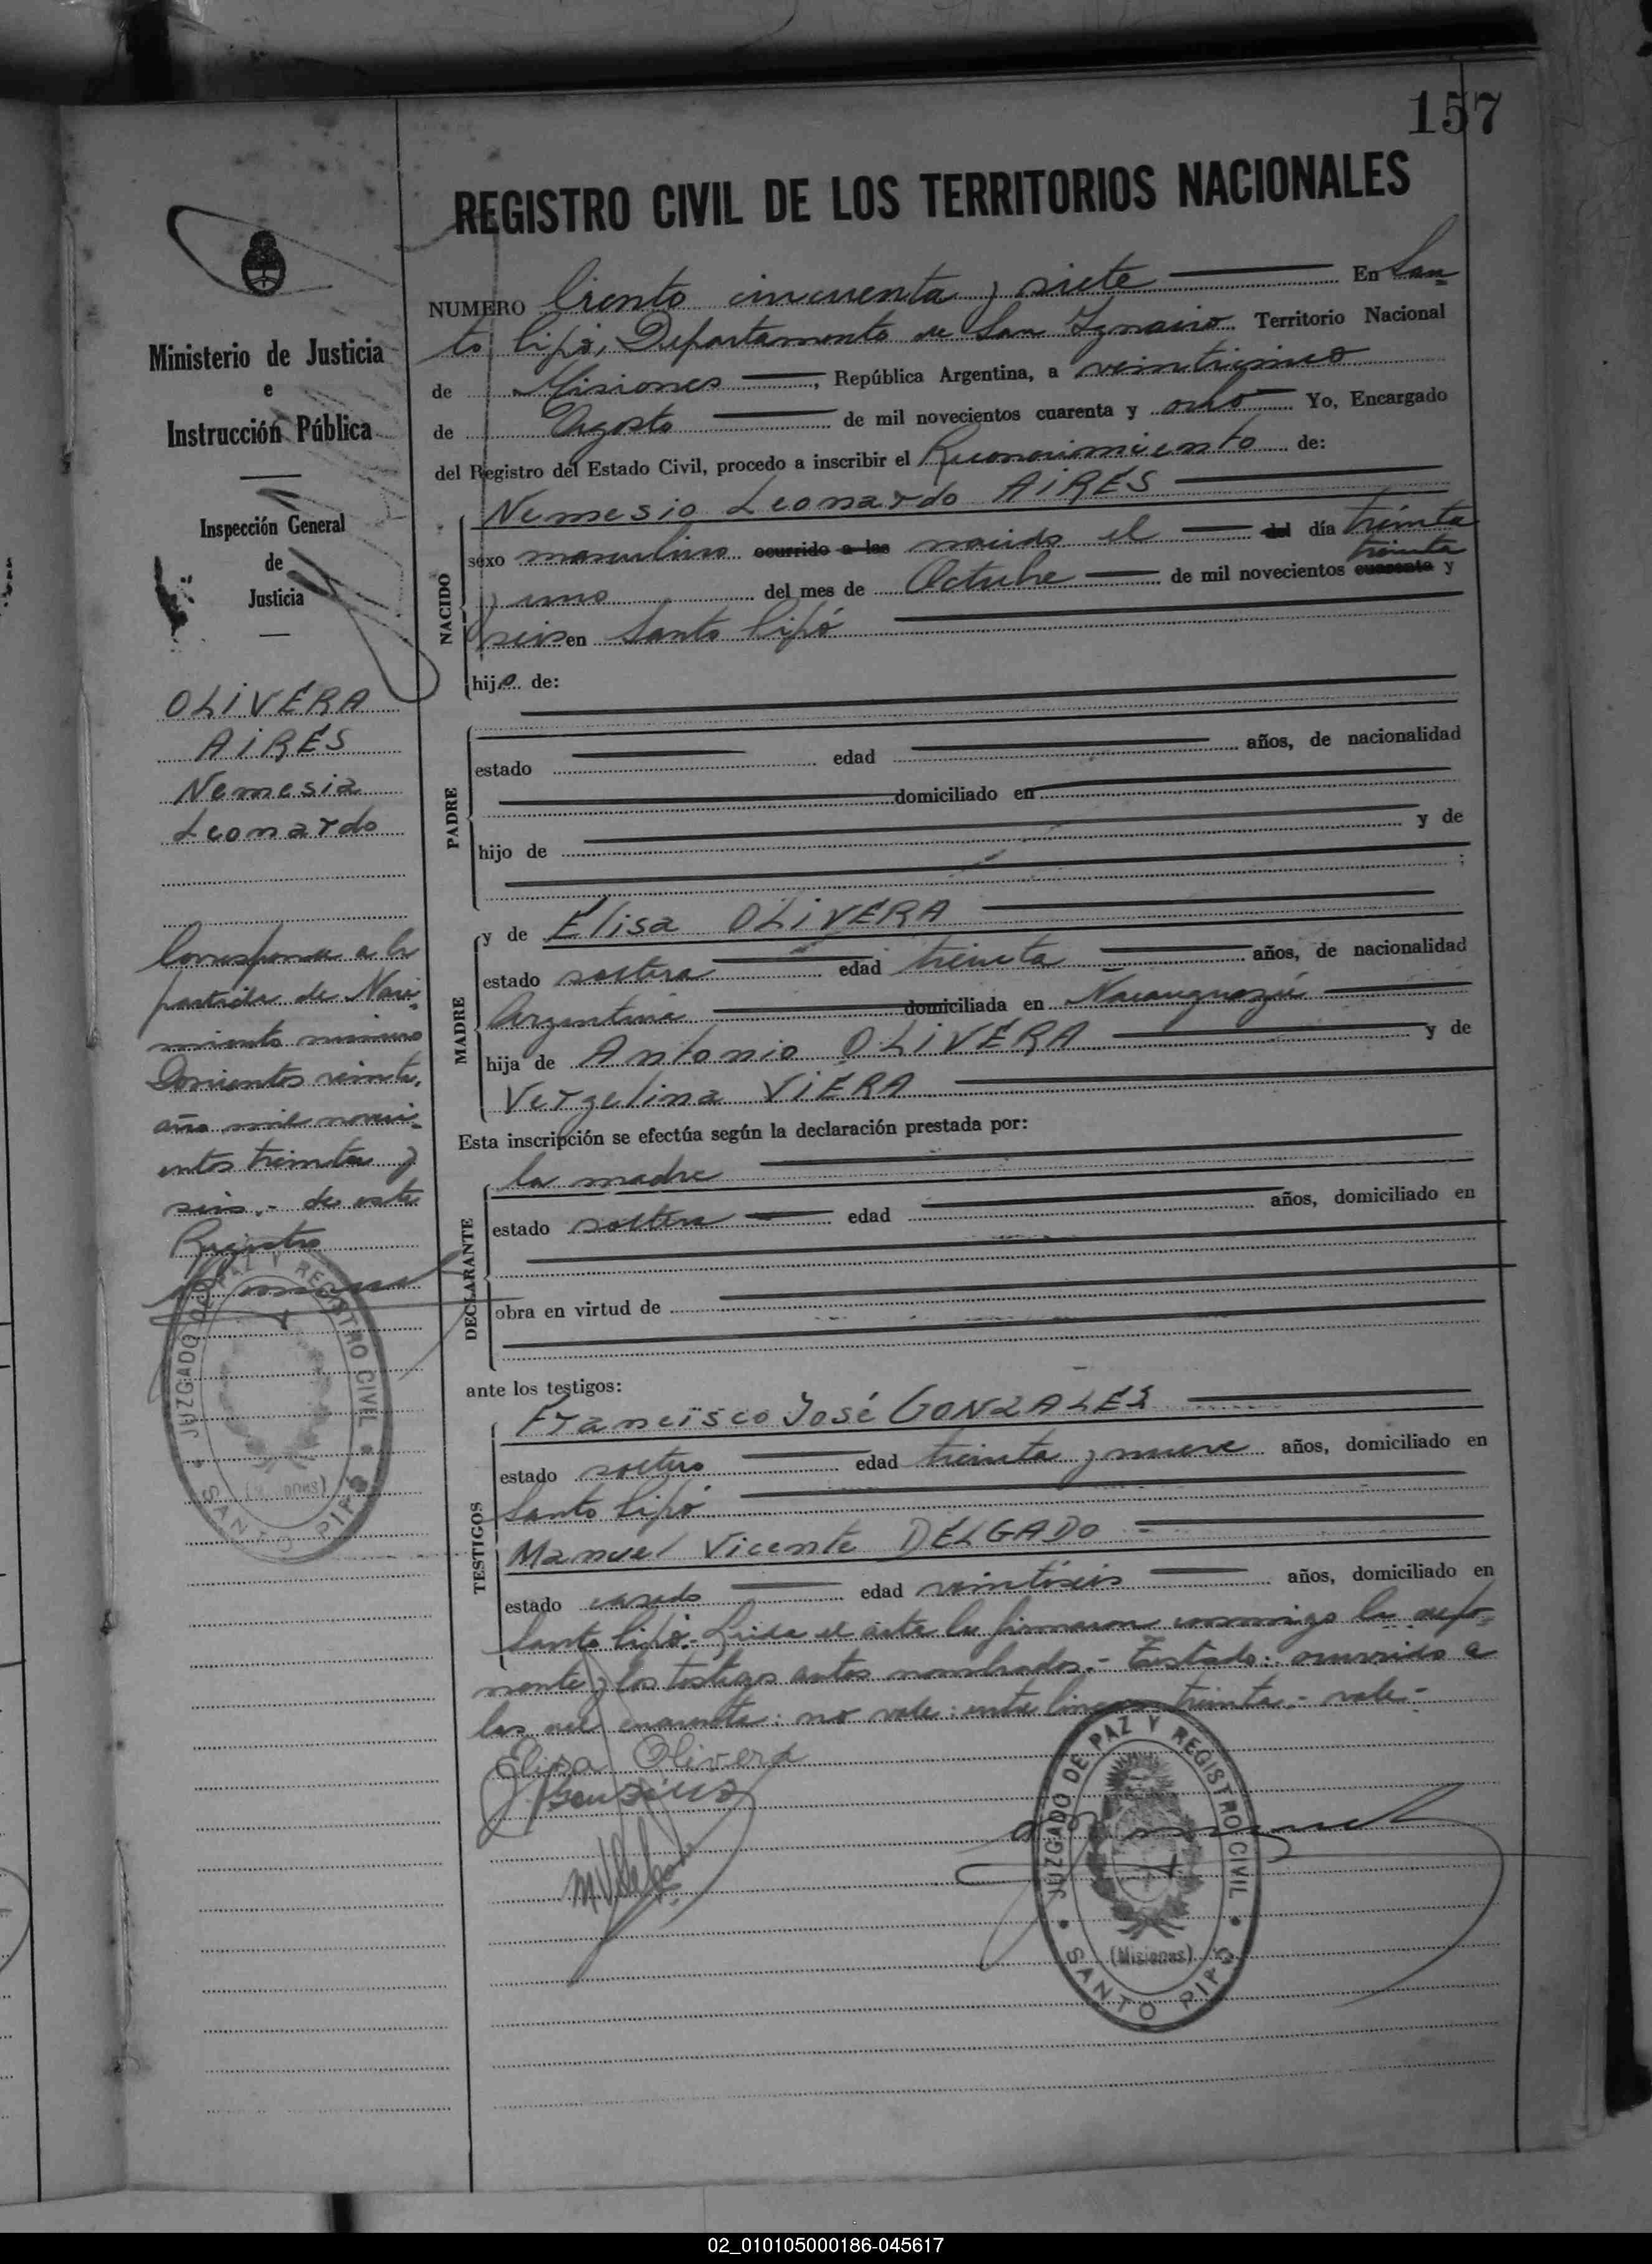 157
REGISTRO CIVIL DE LOS TERRITORIOS NACIONALES
NUMERO Ciento cincuenta y siete En San
to Pipó, Departamento de San Ignacio Territorio Nacional
de Misiones, República Argentina, a veinticinco
de Agosto de mil novecientos cuarenta y ocho Yo, Encargado
del Registro del Estado Civil, procedo a inscribir el Reconocimiento de:
Nemesio Leonardo AIRES
NACIDO
sexo masculino ocurrido a las nacido el del día treinta
treinta
y uno del mes de Octubre de mil novecientos cuarenta y
seis en Santo Pipó
hijo de:
PADRE
estado edad años, de nacionalidad
domiciliado en
hijo de y de
;
MADRE
y de Elisa OLIVERA
estado soltera edad treinta años, de nacionalidad
Argentina domiciliada en Ñacanguazú
hija de Antonio OLIVERA y de
Vergelina VIERA
Esta inscripción se efectúa según la declaración prestada por:
DECLARANTE
la madre
estado soltera edad años, domiciliado en
obra en virtud de
ante los testigos:
TESTIGOS
Francisco José GONZALES
estado soltero edad treinta y nueve años, domiciliado en
Santo Pipó
Manuel Vicente DELGADO
estado casado edad veintiseis años, domiciliado en
Santo Pipó.- Leida el acta la firmaron conmigo la depo=
nente y los testigos antes nombrados.- Testado: ocurrido a
las del cuarenta: no vale: entre lineas treinta - vale.-
Elisa Olivera
JUZGADO DE PAZ Y REGISTRO CIVIL
(Misiones)
SANTO PIPÓ
Ministerio de Justicia
e
Instrucción Pública
Inspección General
de
Justicia
OLIVERA
AIRES
Nemesia
Leonardo
Corresponde a la
partida de Naci-
miento número
Doscientos veinte,
año mil novesi-
entos treinta y
seis.- de este
Registro
JUZGADO DE PAZ Y REGISTRO CIVIL
(Misiones)
SANTO PIPÓ
02_010105000186-045617